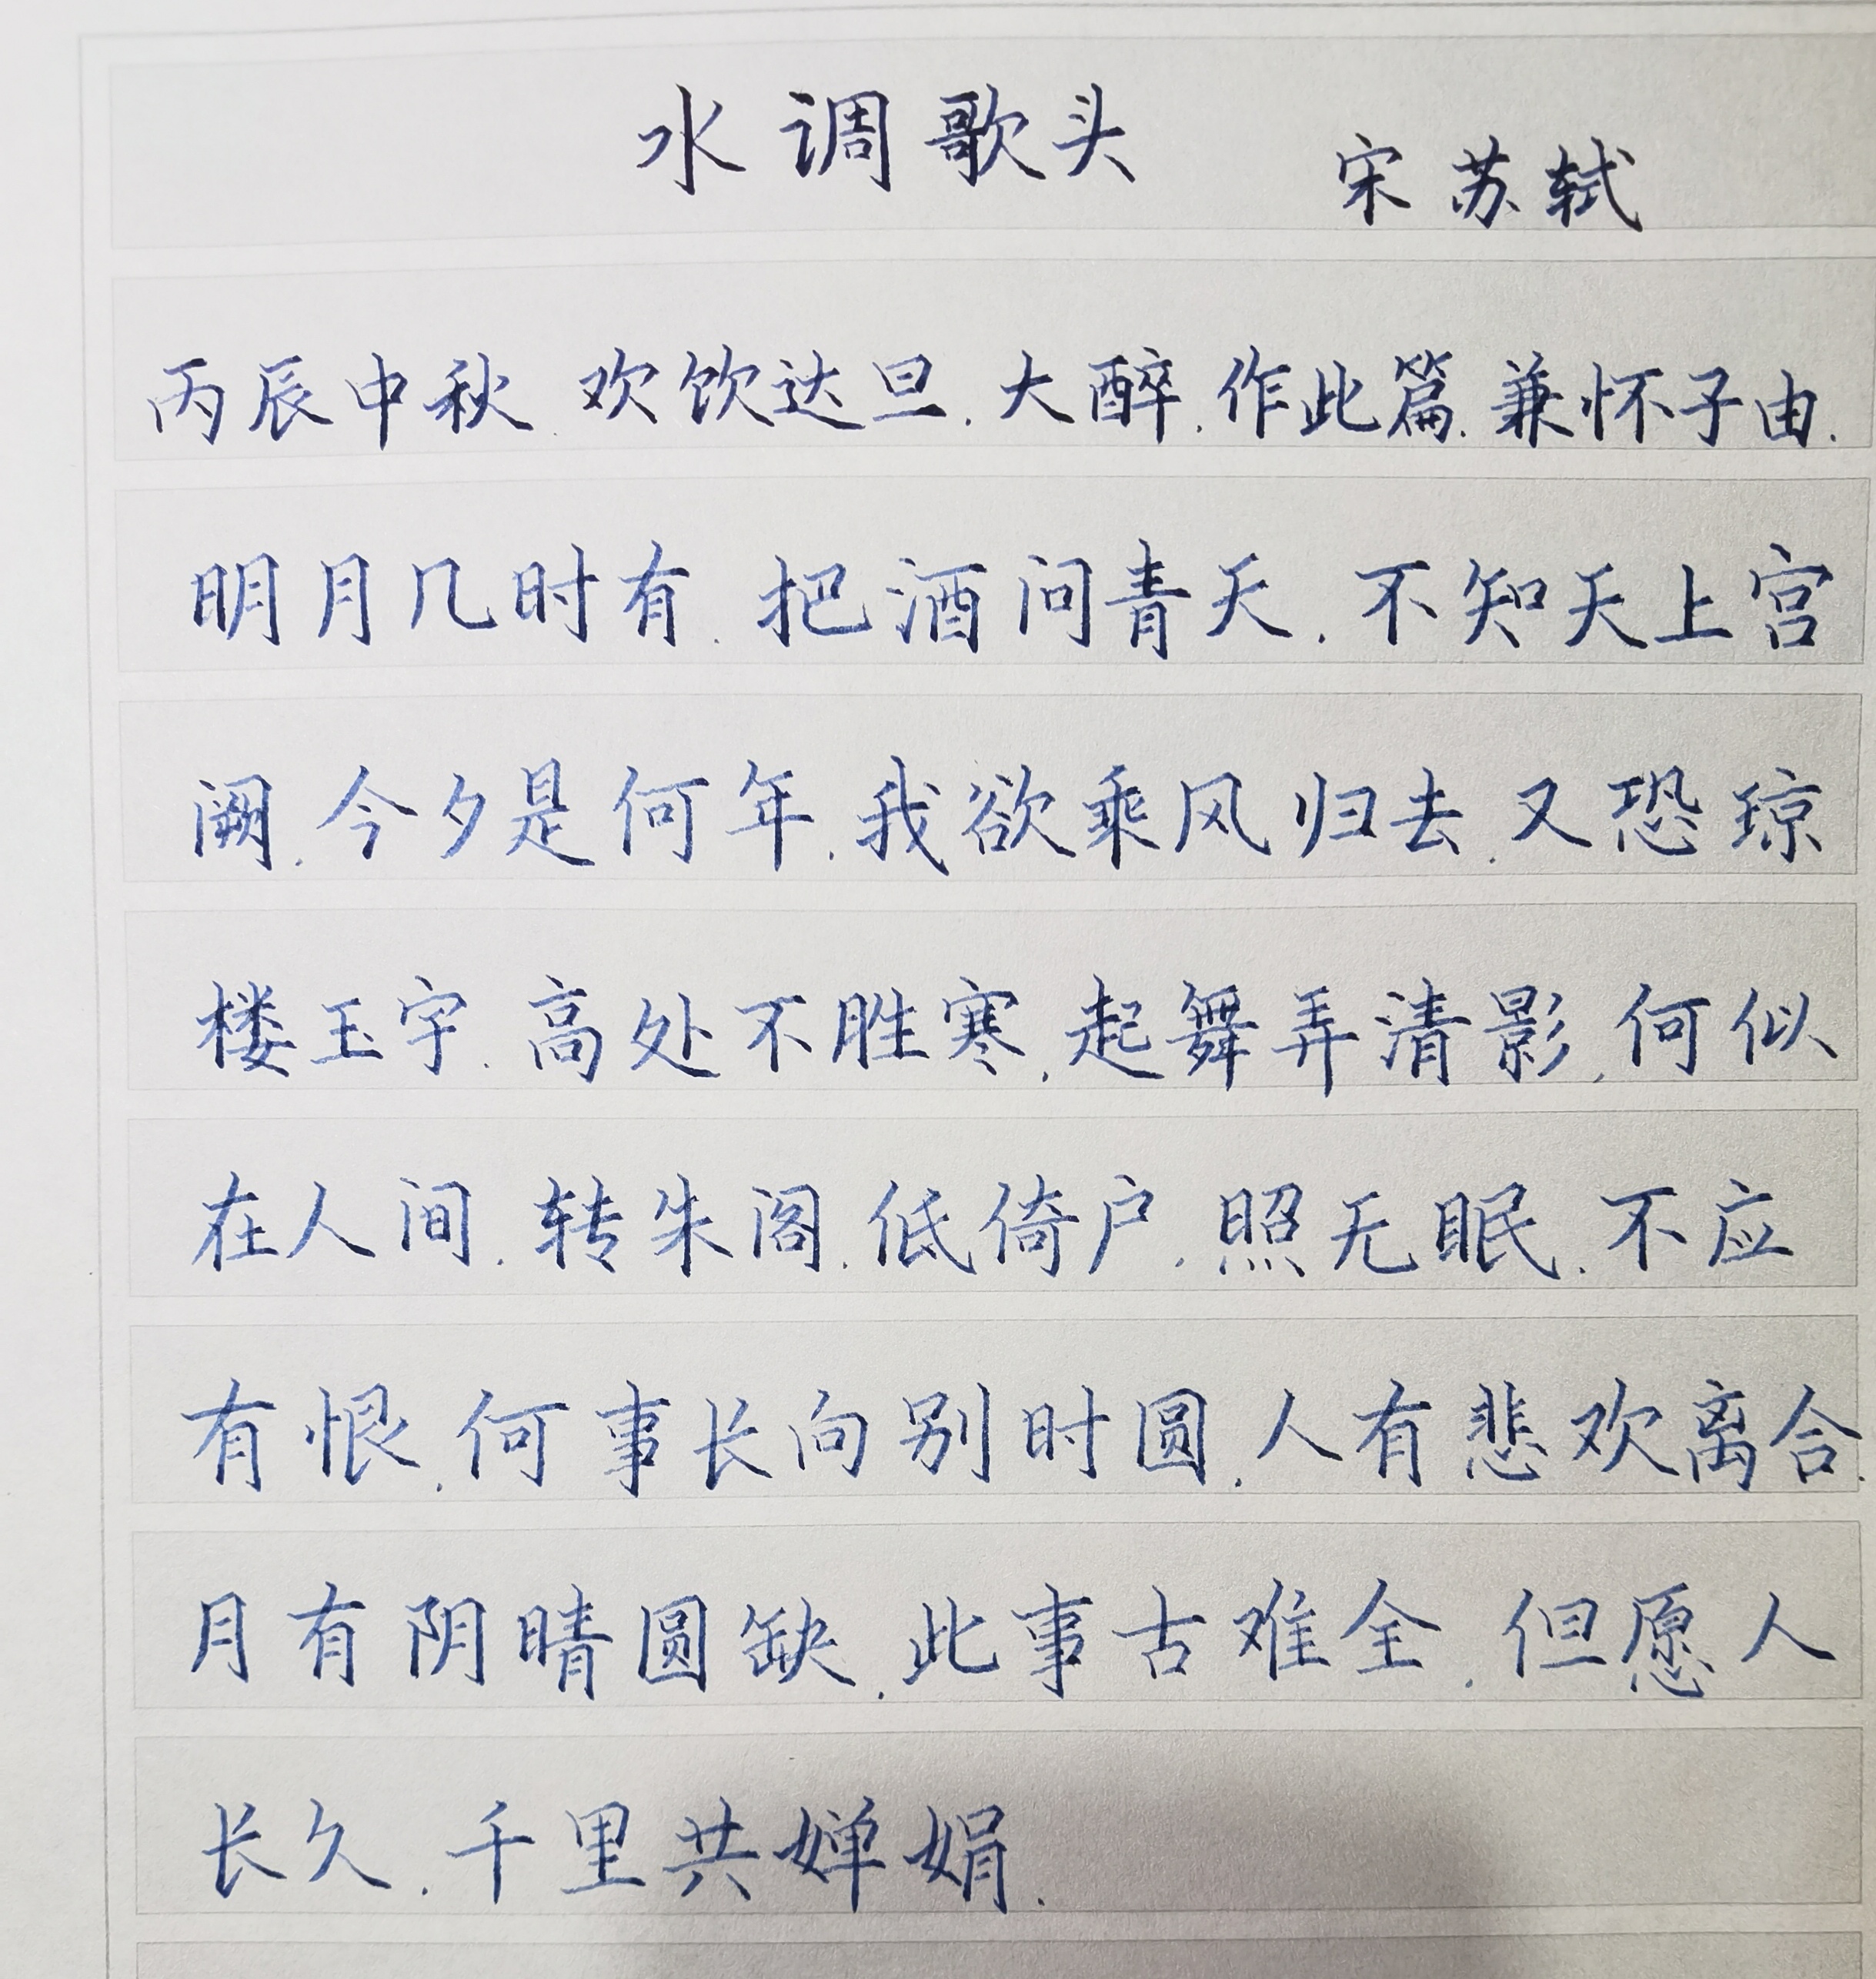 水调歌头 宋 苏轼
丙辰中秋.欢饮达旦.大醉.作此篇.兼怀子由.
明月几时有.把酒问青天.不知天上宫
阙.今夕是何年.我欲乘风归去.又恐琼
楼玉宇.高处不胜寒.起舞弄清影.何似
在人间.转朱阁.低倚户.照无眠.不应
有恨.何事长向别时圆.人有悲欢离合.
月有阴晴圆缺.此事古难全.但愿人
长久.千里共婵娟.